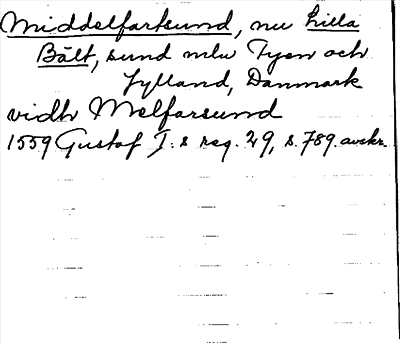 Middelfartsund, nu Lilla
Bält, sund mlu Fyen och
Jylland, Danmark
vidh Melfarsund
1559 Gustaf I:s reg. 29, s. 789. avskr.